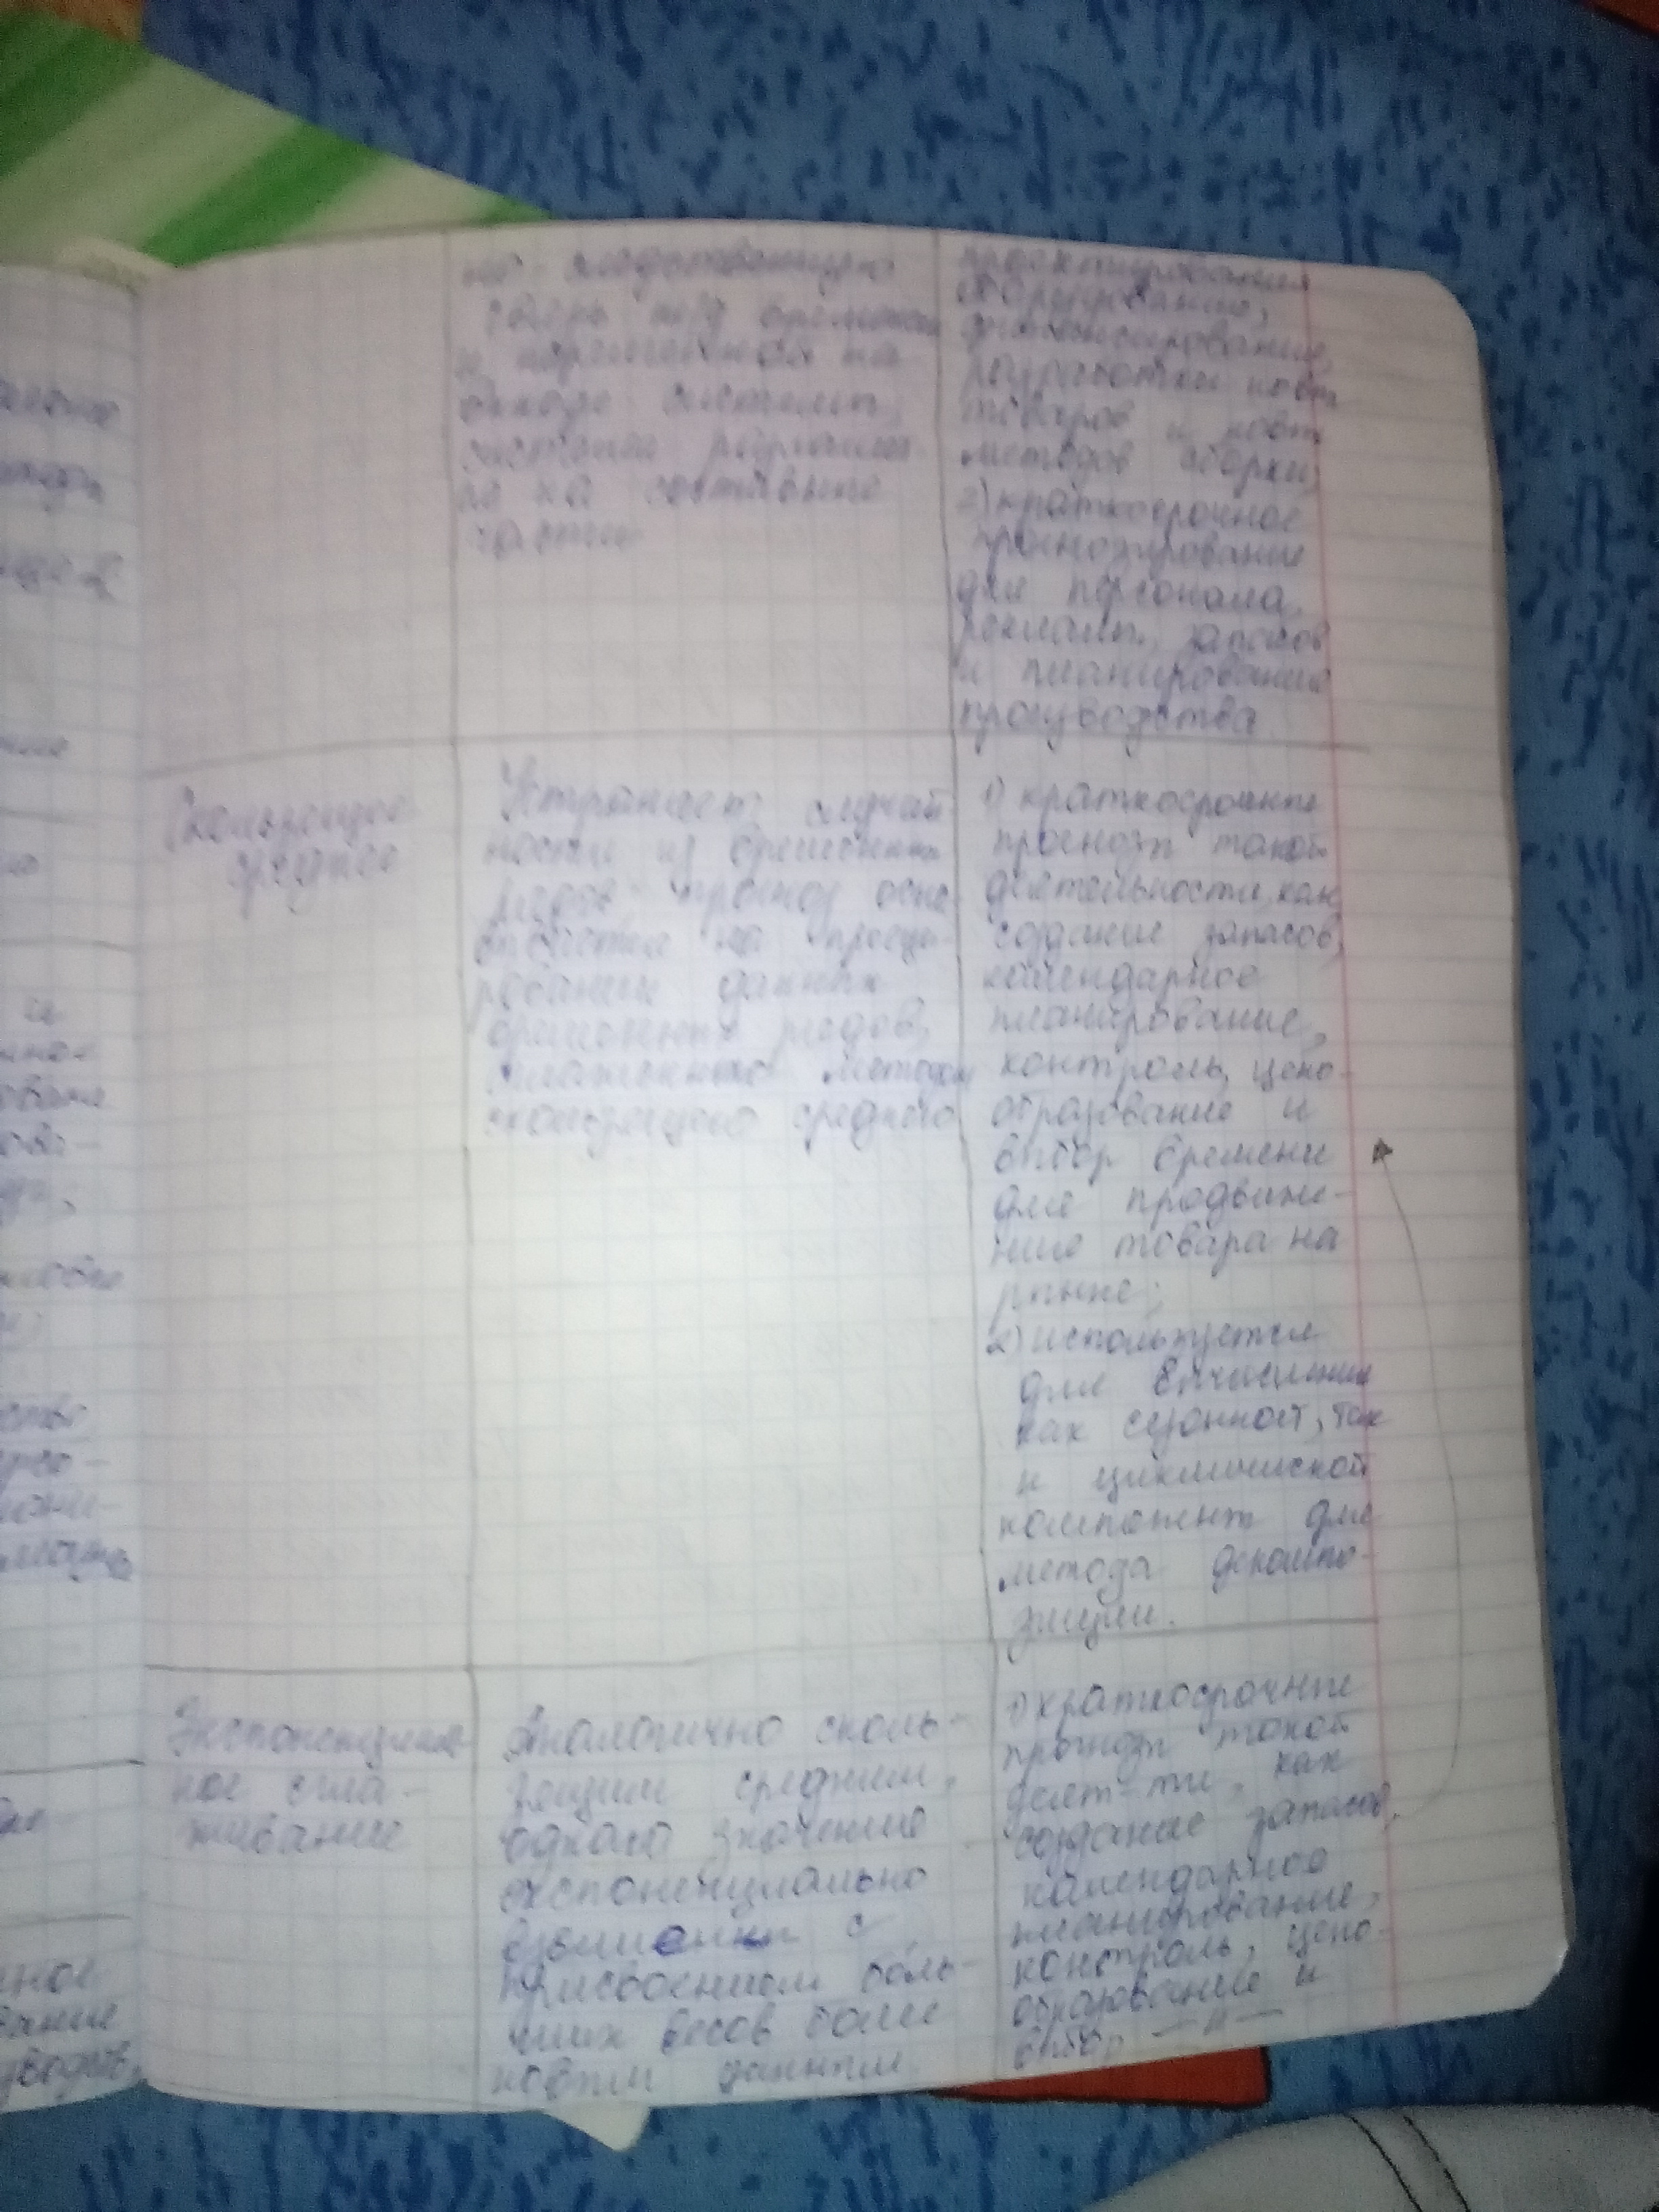 но-следственную
связь м/у временем
и переменной на
выходе системы,
система разложен-
на на составные
части
проектирования
оборудование,
финансирование,
разработки новых
товаров и новых
методов сборки;
2) краткосрочное
прогнозирование
для персонала,
рекламы, запасов
и планирование
производства
Скользящее
среднее
Устраняет случай-
ности из временных
рядов. Прогноз осно-
вывается на проеци-
ровании данных
временных рядов,
сглаженного методом
скользящего среднего
1) краткосрочные
прогнозы такой
деятельности, как
создание запасов,
календарное
планирование,
контроль, цено-
образование и
выбор времени
для продвиже-
ния товара на
рынке;
2) используется
для вычисления
как сезонной, так
и циклической
компонент для
метода декомпо-
зиции.
Экспоненциаль-
ное сгла-
живание
Аналогично сколь-
зящим средним,
однако значение
экспоненциально
взвешены с
присвоением боль-
ших весов более
новым данным
1) краткосрочные
прогнозы такой
деят-ти, как
создание запасов,
календарное
планирование,
контроль, цено-
образование и
выбор —"—